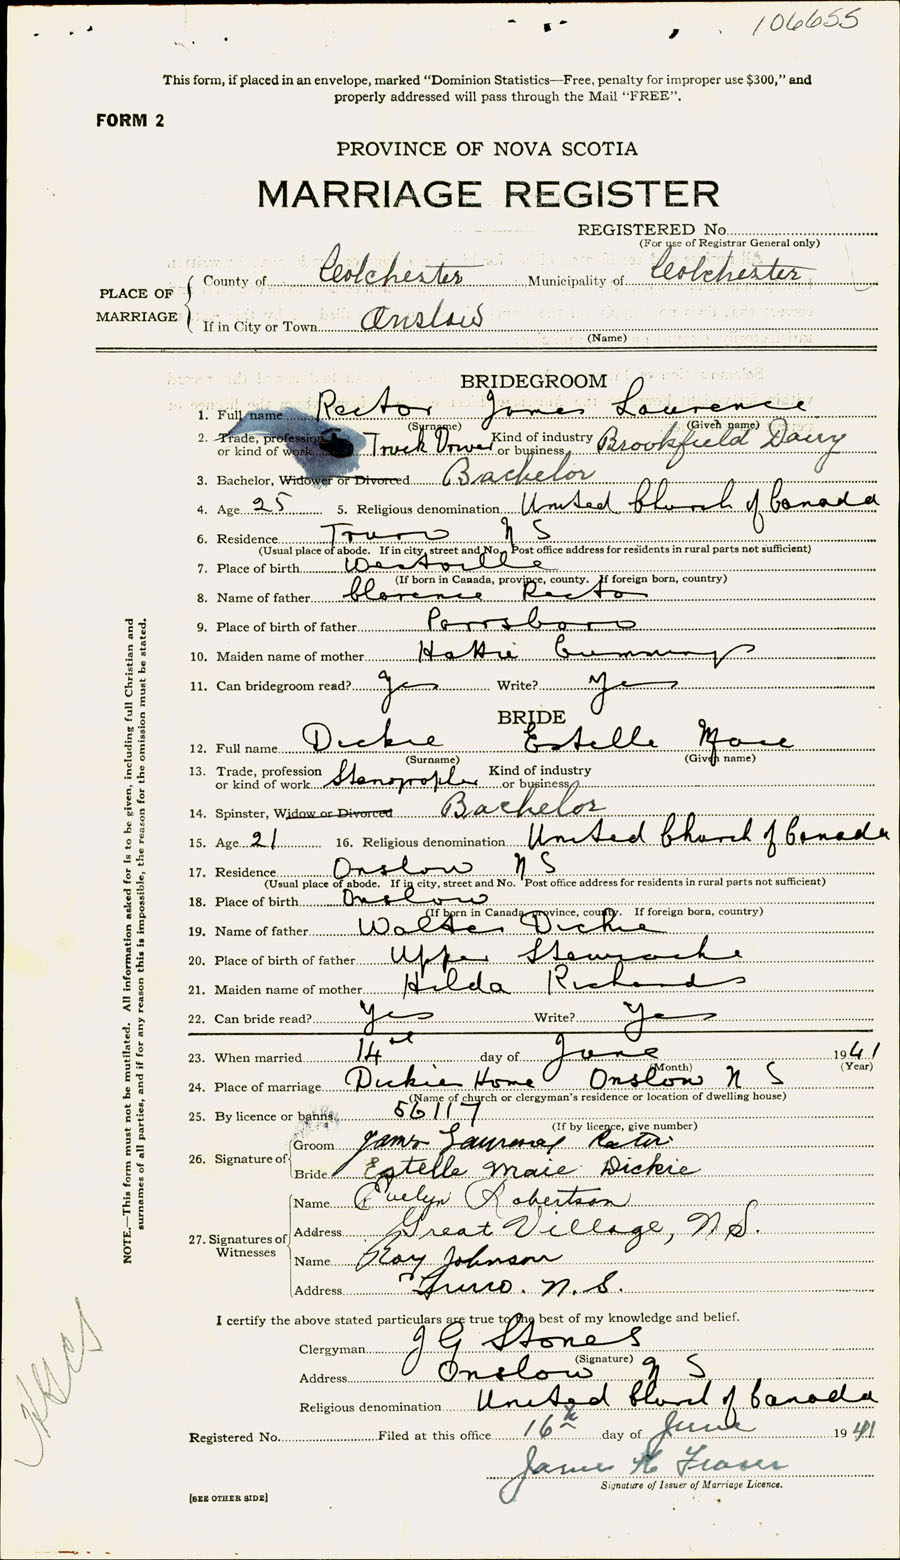 106655
This form, if placed in an envelope, marked "Dominion Statistics—Free, penalty for improper use $300," and
properly addressed will pass through the Mail "FREE".
FORM 2
PROVINCE OF NOVA SCOTIA
MARRIAGE REGISTER
REGISTERED No.
(For use of Registrar General only)
PLACE OF MARRIAGE
County of Colchester Municipality of Colchester
If in City or Town Onslow
(Name)
BRIDEGROOM
1. Full name Rector James Lawrence
(Surname) (Given name)
2. Trade, profession or kind of work Truck Driver Kind of industry or business Brookfield Dairy
3. Bachelor, Widower or Divorced Bachelor
4. Age 25 5. Religious denomination United Church of Canada
6. Residence Truro N S
(Usual place of abode. If in city, street and No. Post office address for residents in rural parts not sufficient)
7. Place of birth Westville
(If born in Canada, province, county. If foreign born, country)
8. Name of father Clarence Rector
9. Place of birth of father Parrsboro
10. Maiden name of mother Hattie Cummings
11. Can bridegroom read? Yes Write? Yes
BRIDE
12. Full name Dickie Estelle Maie
(Surname) (Given name)
13. Trade, profession or kind of work Stenographer Kind of industry or business
14. Spinster, Widow or Divorced Bachelor
15. Age 21 16. Religious denomination United Church of Canada
17. Residence Onslow N S
(Usual place of abode. If in city, street and No. Post office address for residents in rural parts not sufficient)
18. Place of birth Onslow
(If born in Canada, province, county. If foreign born, country)
19. Name of father Walter Dickie
20. Place of birth of father Upper Stewiacke
21. Maiden name of mother Hilda Richards
22. Can bride read? Yes Write? Yes
23. When married 14 day of June 1941
(Month) (Year)
24. Place of marriage Dickie Home Onslow N S
(Name of church or clergyman's residence or location of dwelling house)
25. By licence or banns 56117
(If by licence, give number)
26. Signature of
Groom James Lawrence Rector
Bride Estelle Maie Dickie
27. Signatures of Witnesses
Name Evelyn Robertson
Address Great Village, N.S.
Name Roy Johnson
Address Truro. N.S.
I certify the above stated particulars are true to the best of my knowledge and belief.
Clergyman J G Stones
(Signature)
Address Onslow N S
Religious denomination United Church of Canada
Registered No. Filed at this office 16th day of June 1941
James H Fraser
Signature of Issuer of Marriage Licence.
[SEE OTHER SIDE]
NOTE.—This form must not be mutilated. All information asked for is to be given, including full Christian and
surnames of all parties, and if for any reason this is impossible, the reason for the omission must be stated.